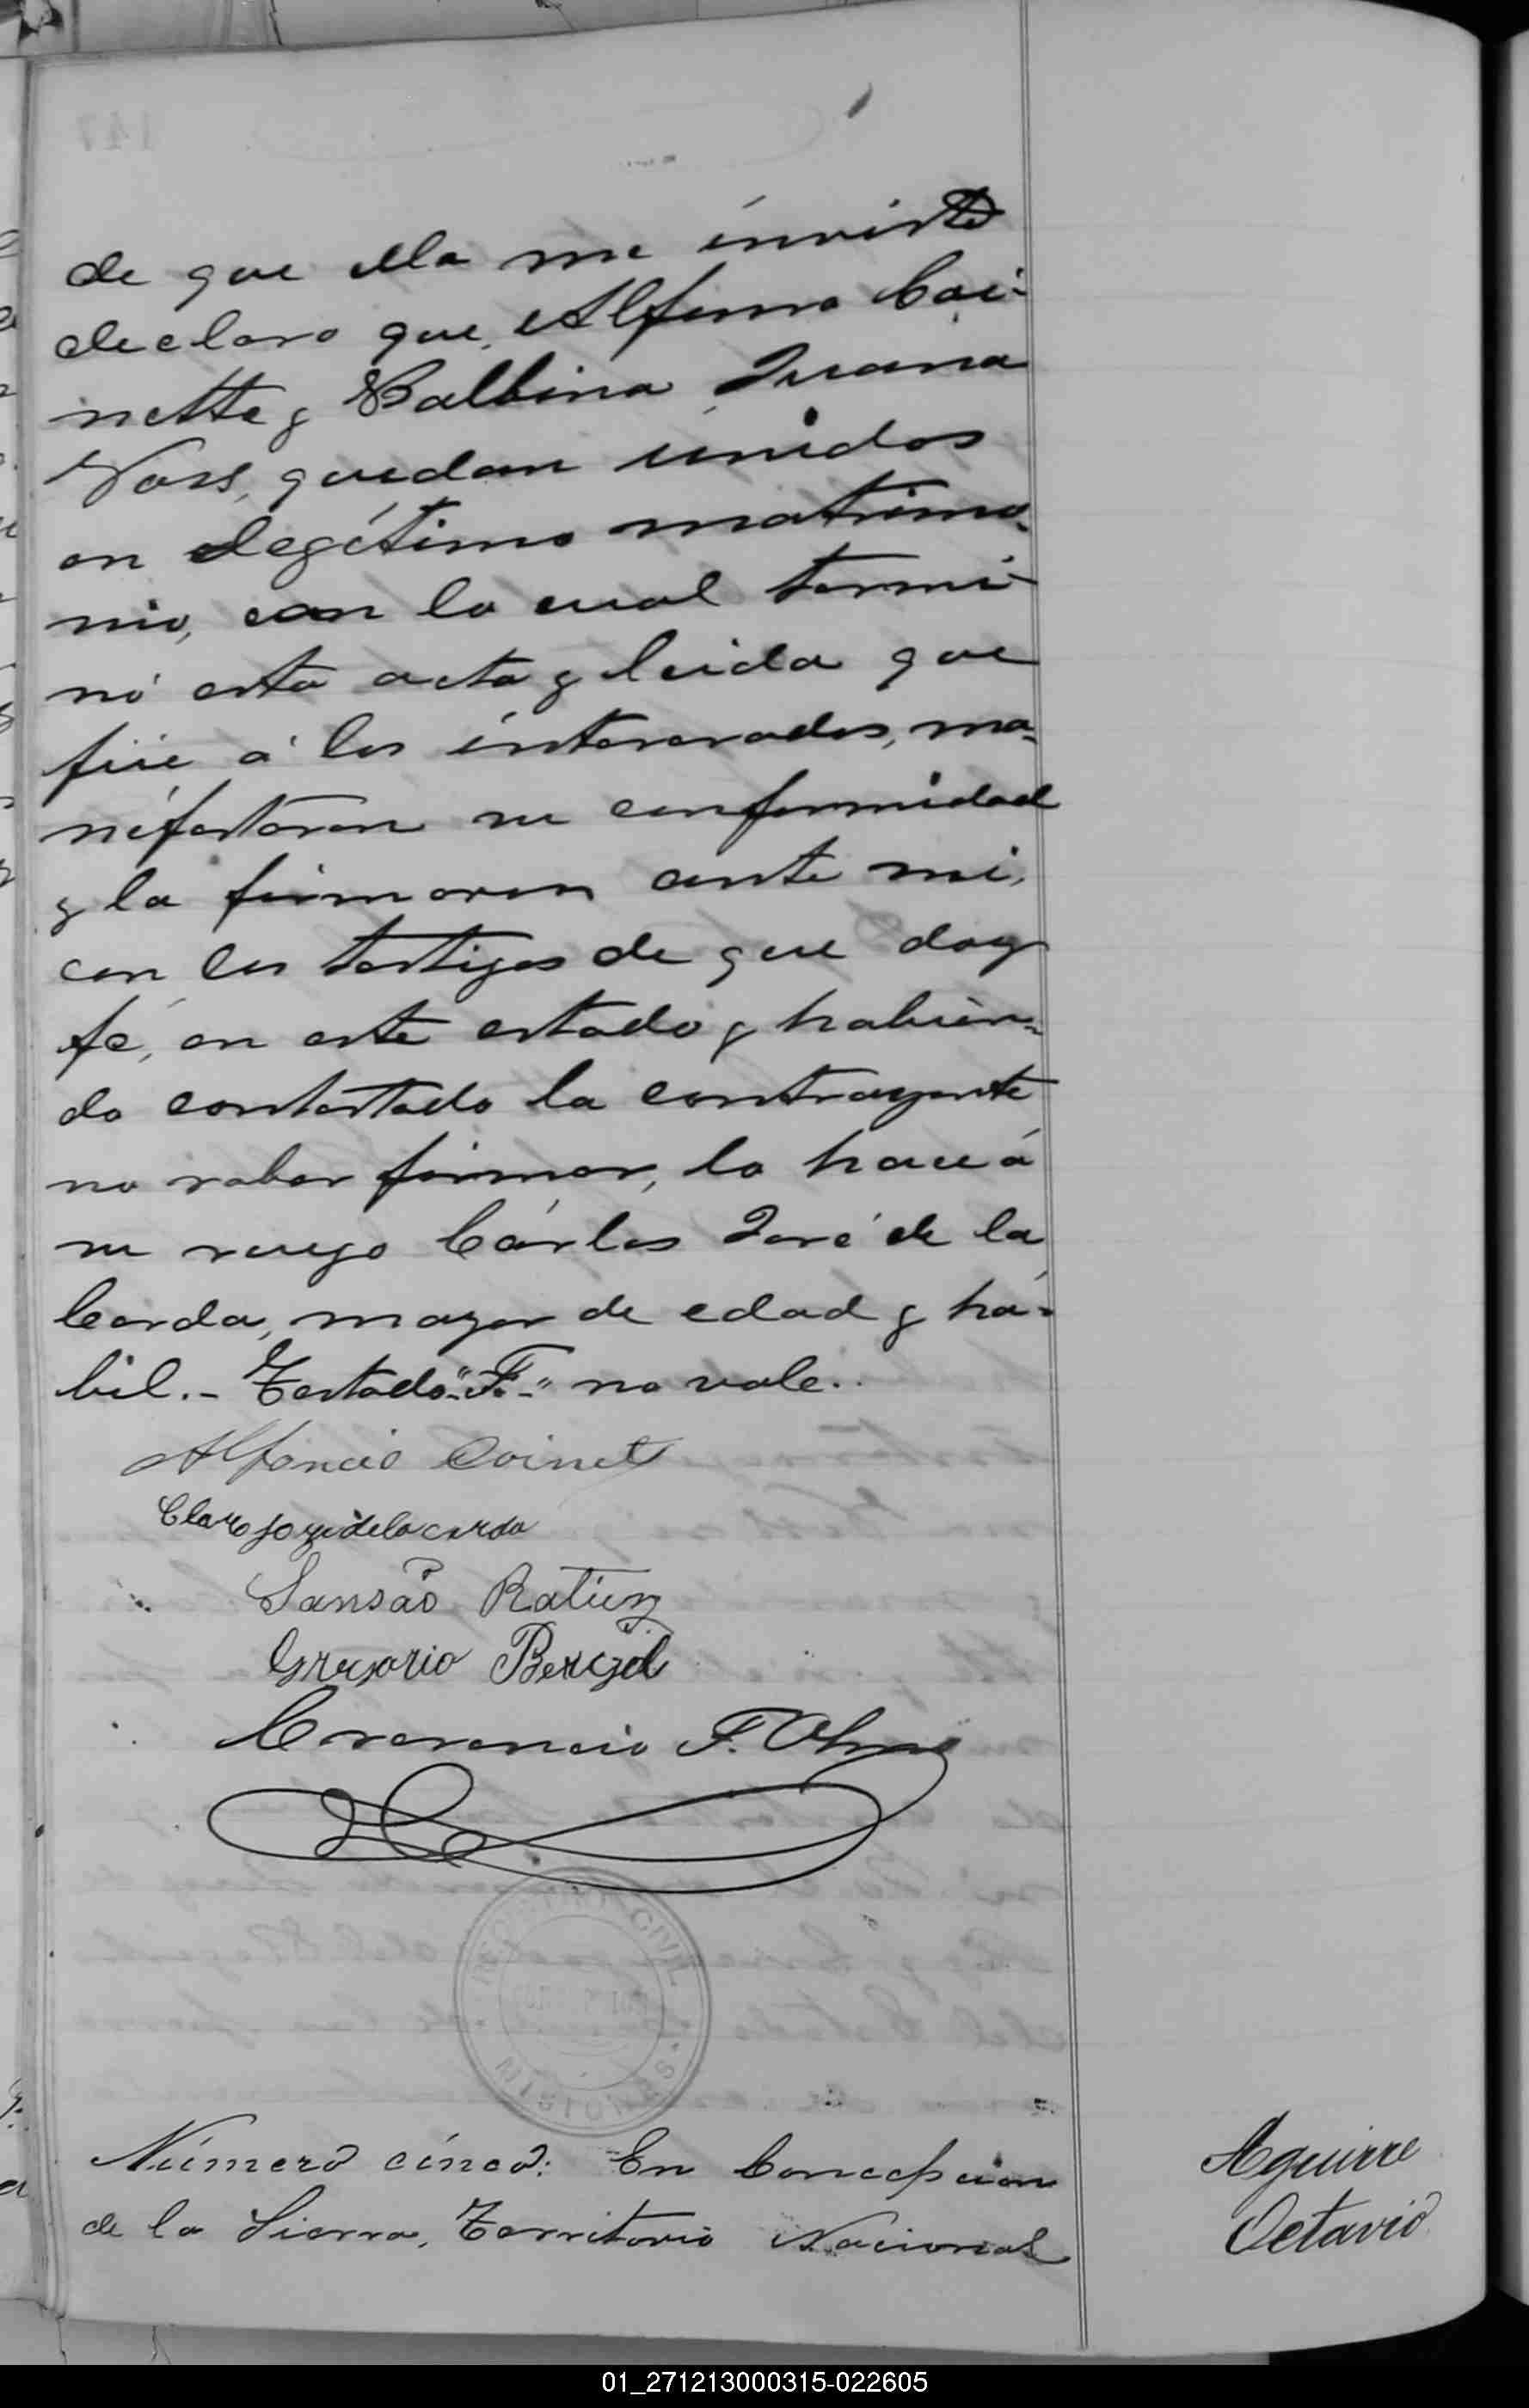 de que ella me inviste
declaro que, Alfonso Coi-
nette y Balbina Juana
Voss, quedan unidos
en legítimo matrimo-
nio, con lo cual termi-
nó esta acta y leida que
fué á los interesados, ma-
nifestaron su conformidad
y la firmaron ante mi,
con los testigos de que doy
fé, en este estado y habien-
do contestado la contrayente
no saber firmar, lo hace á
su ruego Cárlos José de la
Cerda, mayor de edad y há-
bil.- Testado "F." no vale.
Alfoncio Coinet
Claro jozé de la cerda
Sansão
Gregorio
Crecencio F.
REGISTRO CIVIL
MISIONES
Número cinco: En Concepcion
de la Sierra, Territorio Nacional
Aguirre
Octavio
01_271213000315-022605